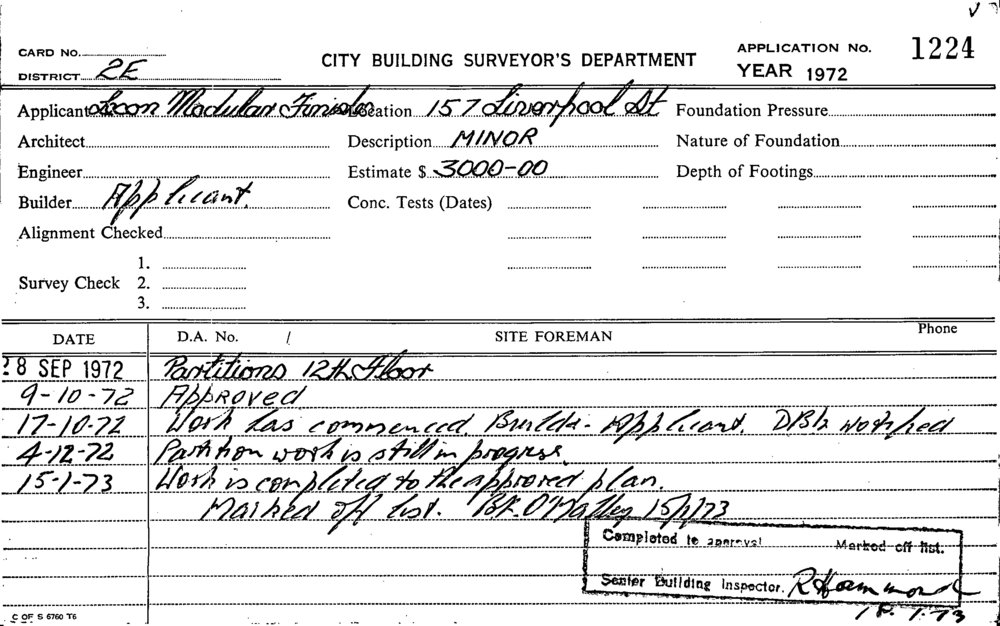 CARD No.
DISTRICT 2E
CITY BUILDING SURVEYOR'S DEPARTMENT
APPLICATION No. 1224
YEAR 1972
Applicant Modular Location 157 Liverpool St Foundation Pressure
Architect Description MINOR Nature of Foundation
Engineer Estimate $ 3000-00 Depth of Footings
Builder Applicant. Conc. Tests (Dates)
Alignment Checked
1.
Survey Check 2.
3.
DATE D.A. No. / SITE FOREMAN Phone
28 SEP 1972 Partitions 12th Floor
9-10-72 Approved
17-10-72 Work has commenced. Builder - Applicant. notified
4-12-72 Partition work is still in progress.
15-1-73 Work is completed to the approved plan.
Marked off list. B.F. O'Malley 15/1/73
Completed to approval Marked off list.
Senior Building Inspector. R Hammond
18.1.73
C OF S 6760 T6